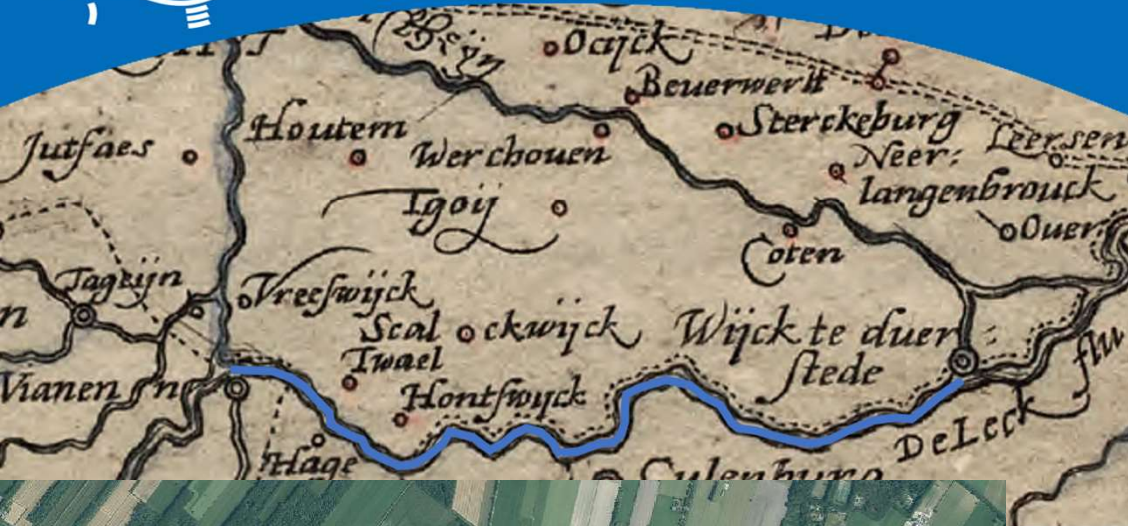 Reijn
Oaijck
Beuerwerlt
Sterckeburg
Leersen
Jutfaes
Houtem
Werchouen
Neer:
langenbrouck
Tgoij
Ouer:
Coten
Tageijn
Vreeswijck
Scal ockwijck
Wijck te duer
stede
Twael
Vianen
Hontswijck
flu
De Leck
Hage
Culenburg